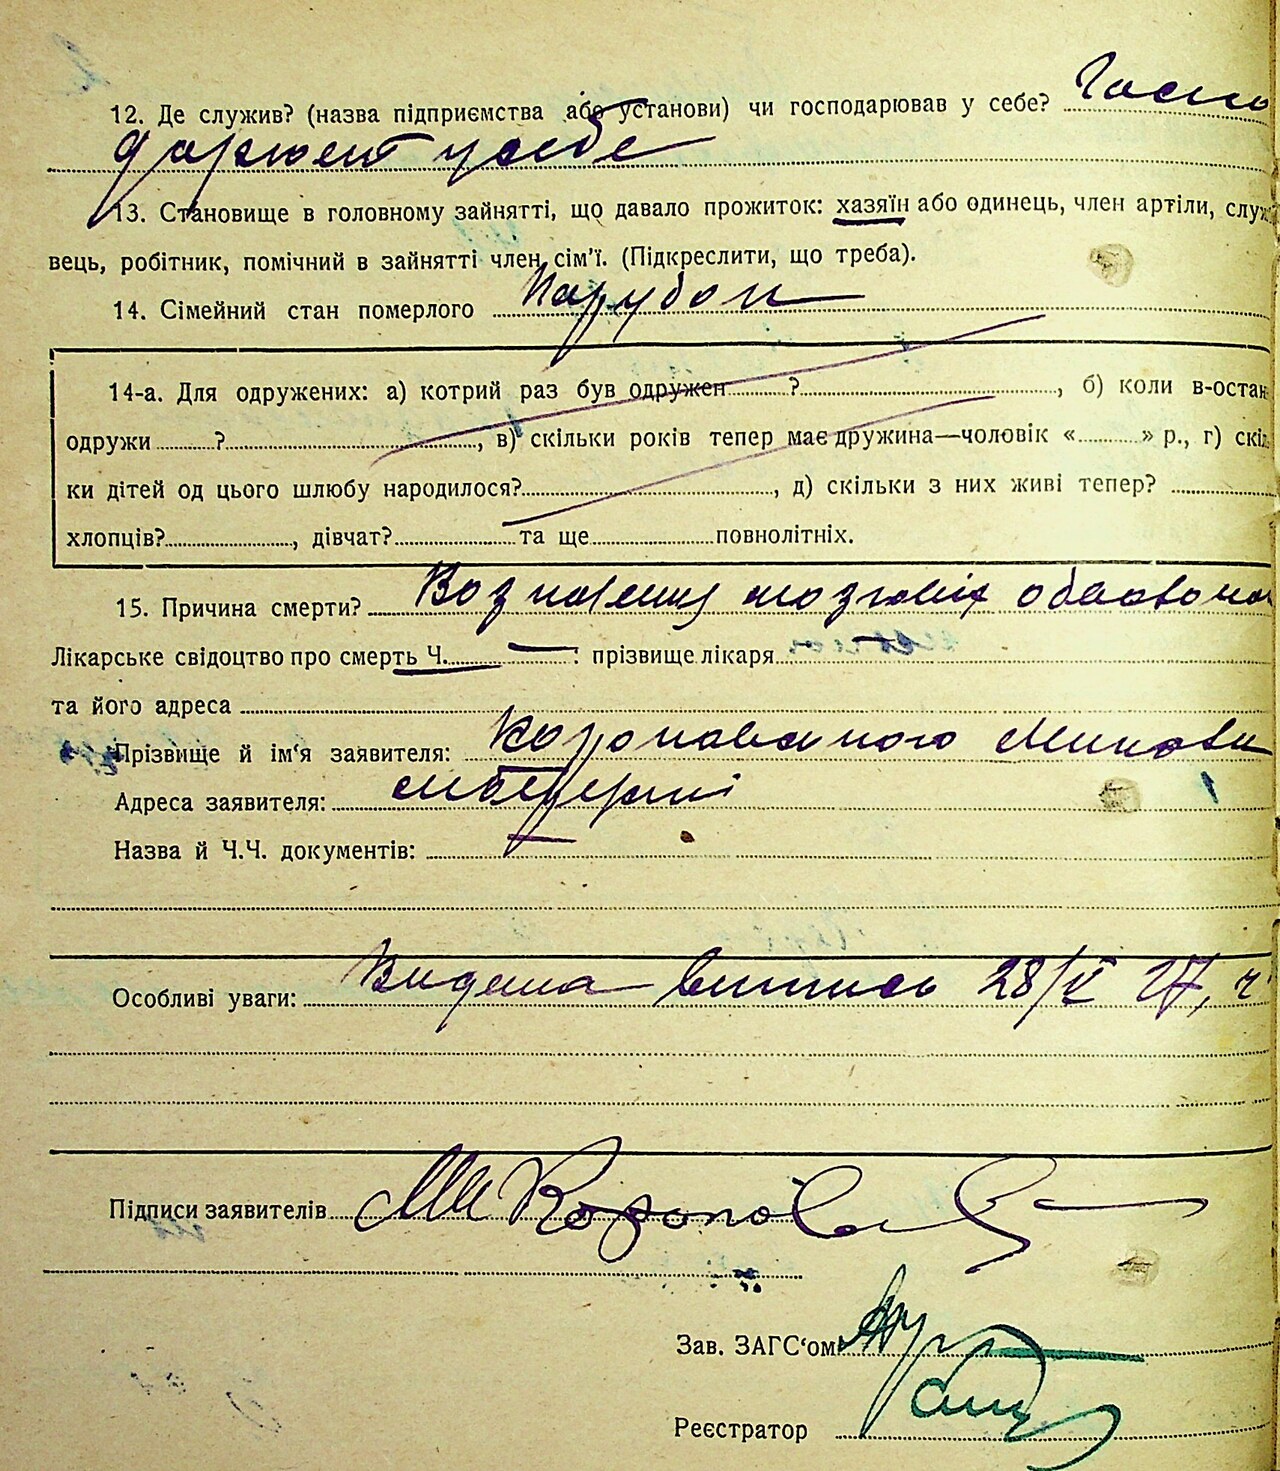 12. Де служив? (назва підприємства або установи) чи господарював у себе? Госпо
дарює у себе
13. Становище в головному зайнятті, що давало прожиток: хазяїн або одинець, член артіли, служ
вець, робітник, помічний в зайнятті член сім'ї. (Підкреслити, що треба).
14. Сімейний стан померлого Парубок
14-а. Для одружених: а) котрий раз був одружен ? , б) коли в-остан
одружи ? , в) скільки років тепер має дружина—чоловік « » р., г) скіл
ки дітей од цього шлюбу народилося? , д) скільки з них живі тепер?
хлопців? , дівчат? та ще повнолітніх.
15. Причина смерти?
Лікарське свідоцтво про смерть Ч. — : прізвище лікаря
та його адреса
Прізвище й ім'я заявителя:
Адреса заявителя:
Назва й Ч.Ч. документів: —
Особливі уваги: Видана випись 28/V 27, ч
Підписи заявителів
Зав. ЗАГС'ом
Реєстратор